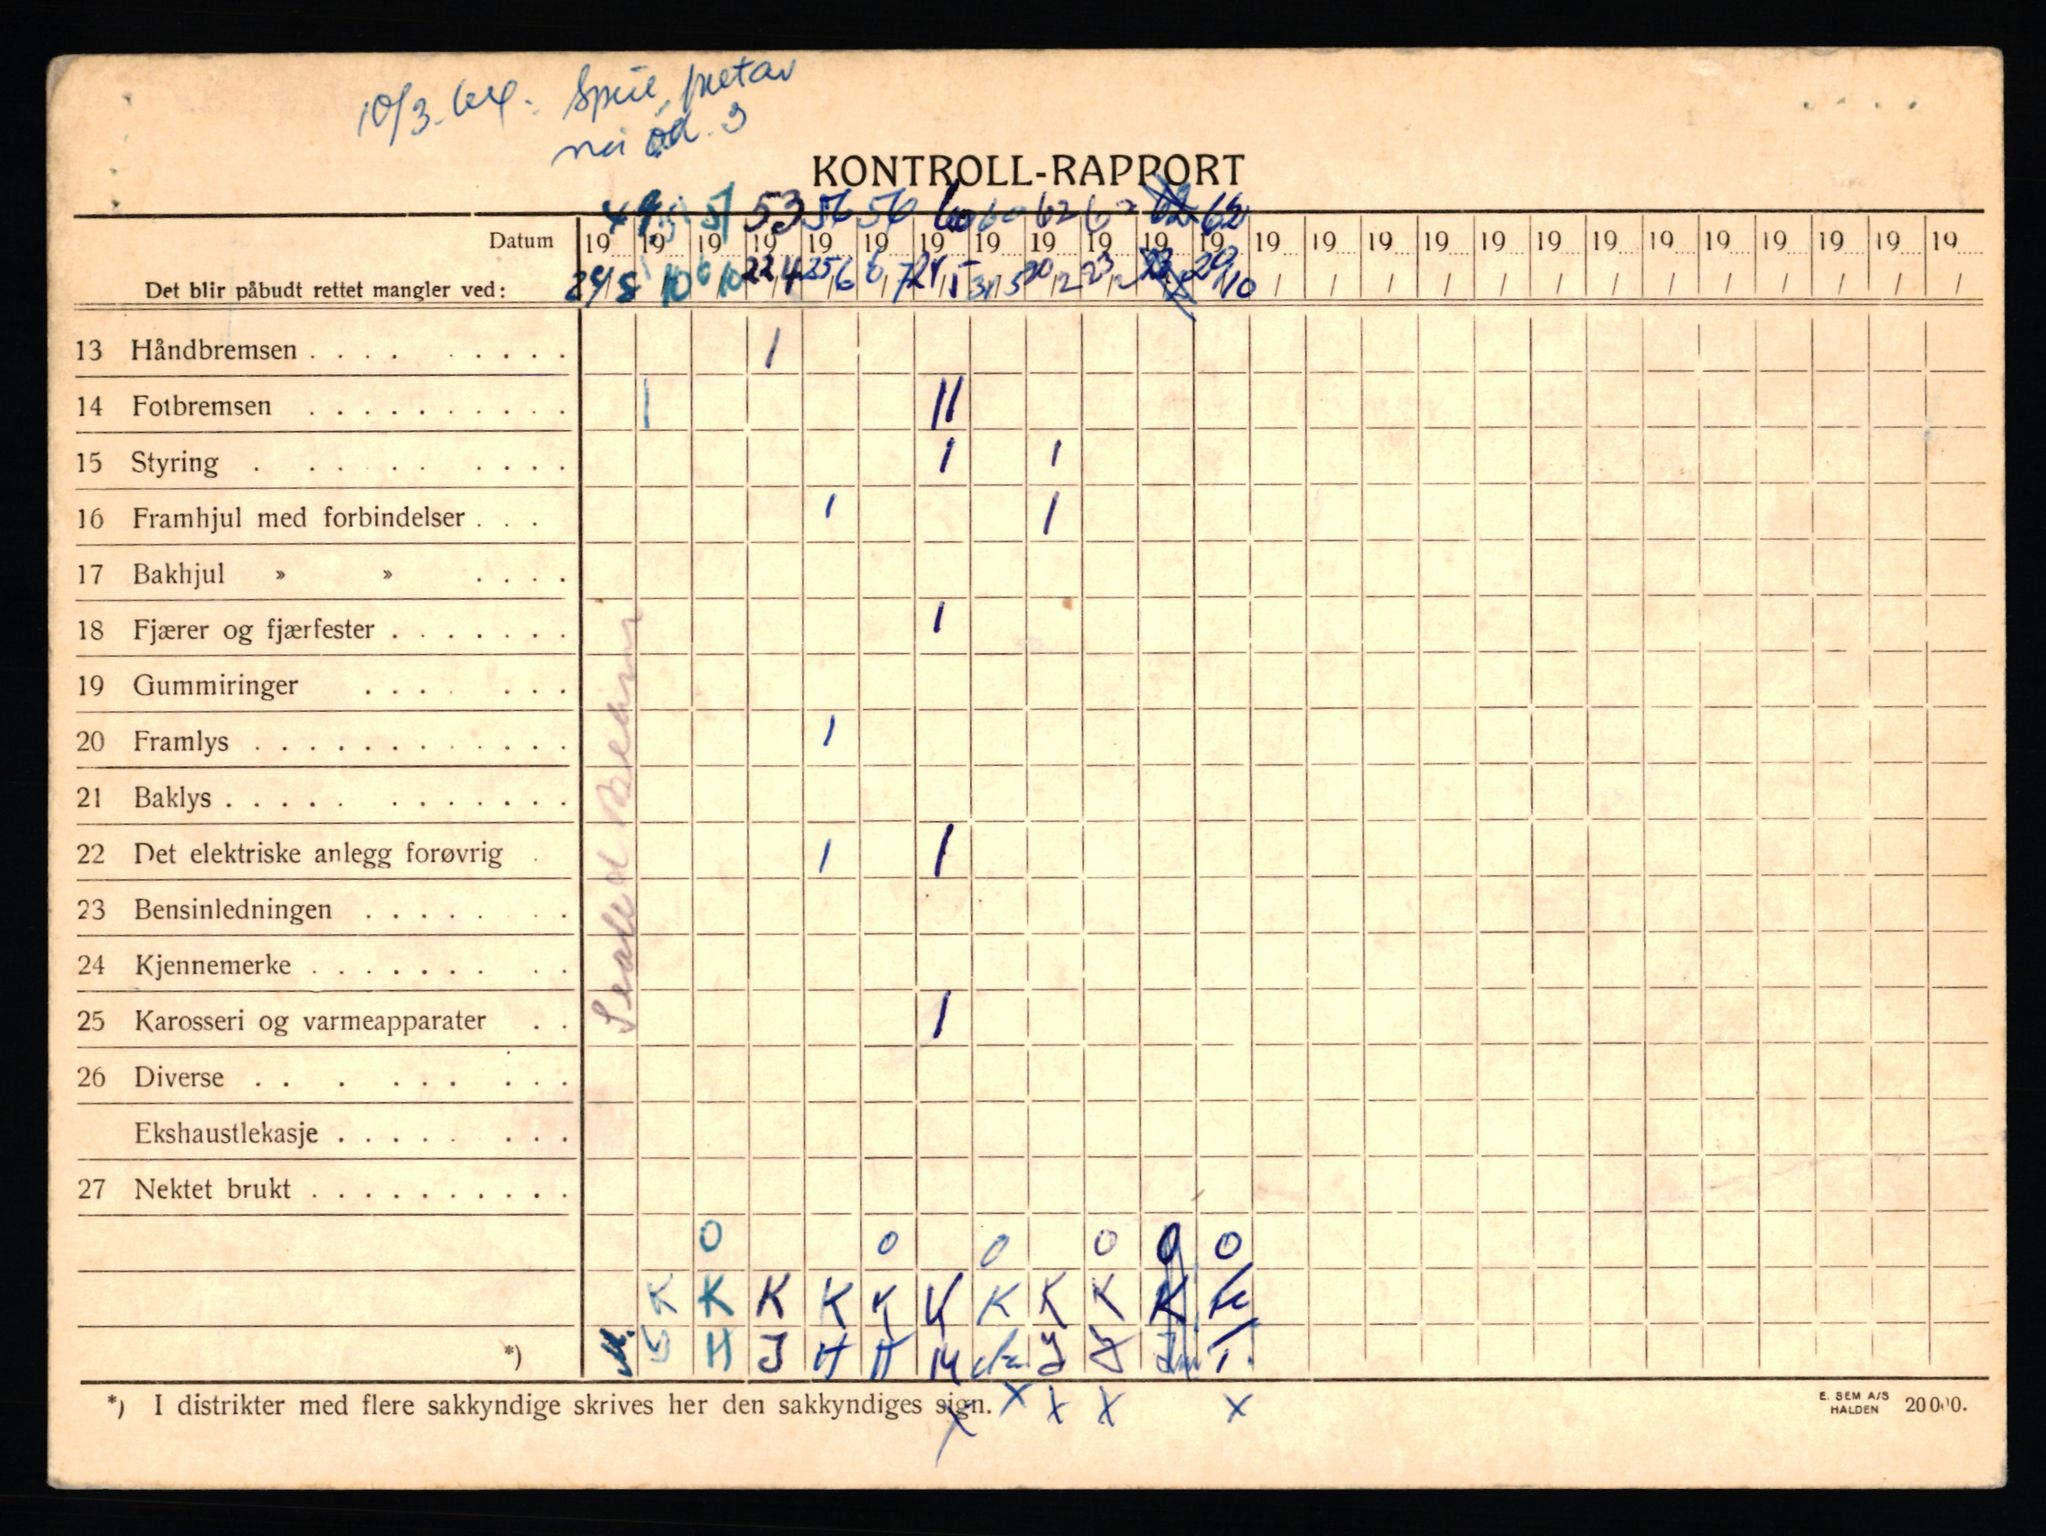 10/3.64.
KONTROLL-RAPPORT
49 51 51 53 56 56 60 60 62 62 62 62
Datum 19 19 19 19 19 19 19 19 19 19 19 19 19 19 19 19 19 19 19 19 19 19 19 19 19
Det blir påbudt rettet mangler ved: 24/8 /10 6/10 22/4 25/6 6/7 24/5 31/5 20/2 23/2 29/10 / / / / / / / / / / / / /
13 Håndbremsen . . . . . . . . . 1
14 Fotbremsen . . . . . . . . . . 1 11
15 Styring . . . . . . . . . 1 1
16 Framhjul med forbindelser . . . 1 1
17 Bakhjul » » . . . .
18 Fjærer og fjærfester . . . . . . . 1
19 Gummiringer . . . . . . .
20 Framlys . . . . . . . . . . . . 1
21 Baklys . . . . . . . . . . . .
22 Det elektriske anlegg forøvrig . 1 1
23 Bensinledningen . . . . . . .
24 Kjennemerke . . . . . . . . .
25 Karosseri og varmeapparater . . 1
26 Diverse . . . . . . . . .
Ekshaustlekasje . . . . . . . .
27 Nektet brukt . . . . . . . . . .
Sealed Beam
0 0 0 0 0 0
K K K K K K K K K K K
*) H J H H M J J T.
*) I distrikter med flere sakkyndige skrives her den sakkyndiges sign. x x x x x
E. SEM A/S
HALDEN 20000.